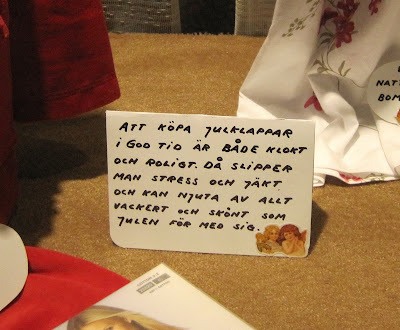 ATT KÖPA JULKLAPPAR
I GOD TID ÄR BÅDE KLOKT
OCH ROLIGT. DÅ SLIPPER
MAN STRESS OCH JÄKT
OCH KAN NJUTA AV ALLT
VACKERT OCH SKÖNT SOM
JULEN FÖR MED SIG.
NATT
BOM